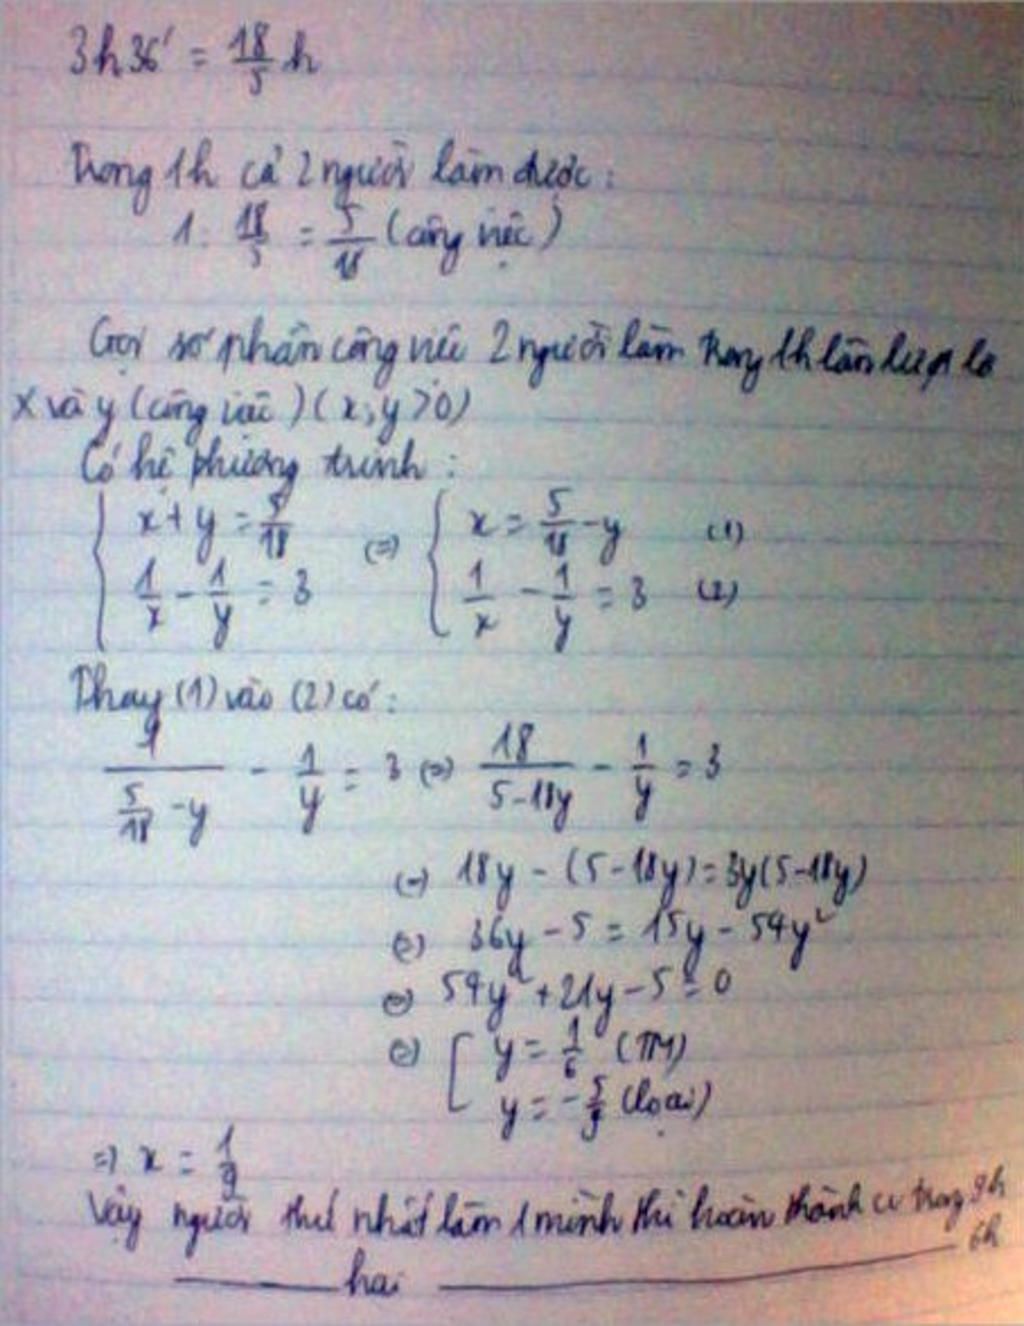 3h36' = 18/5 h
Trong 1h cả 2 người làm được:
1 : 18/5 = 5/18 (công việc)
Gọi số phần công việc 2 người làm trong 1h lần lượt là
x và y (công việc) (x, y > 0)
Có hệ phương trình:
{ x + y = 5/18 (=) { x = 5/18 - y (1)
{ 1/x - 1/y = 3 { 1/x - 1/y = 3 (2)
Thay (1) vào (2) có:
1/(5/18 - y) - 1/y = 3 (=) 18/(5-18y) - 1/y = 3
(=) 18y - (5-18y) = 3y(5-18y)
(=) 36y - 5 = 15y - 54y²
(=) 54y² + 21y - 5 = 0
(=) [ y = 1/6 (TM)
[ y = -5/9 (loại)
=) x = 1/9
Vậy người thứ nhất làm 1 mình thì hoàn thành cv trong 9h
hai 6h